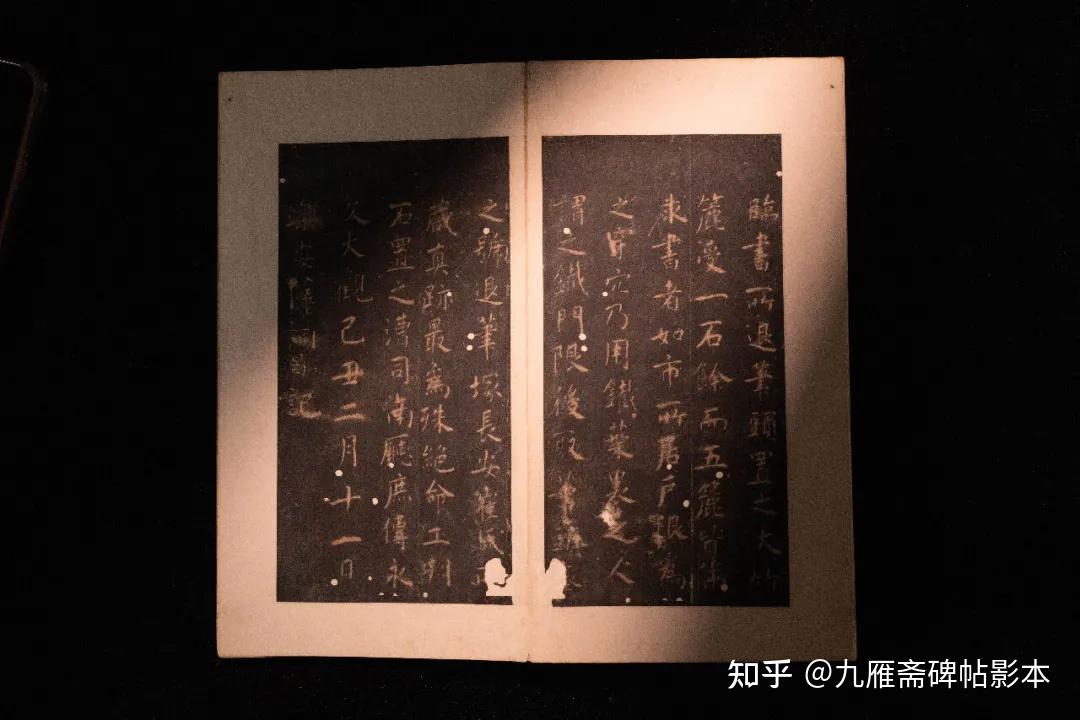 臨書所退筆頭置之大竹
簏受一石餘而五簏皆滿
求書者如市所居戶限為
之穿穴乃用鐵葉裹之人
謂之鐵門限後取筆頭
之號退筆塚長安崔氏所
藏真跡最為殊絕命工刊
石置之漕司南廳庶傳永
久大觀己丑二月十一日
樂安薛嗣昌記
知乎 @九雁斋碑帖影本